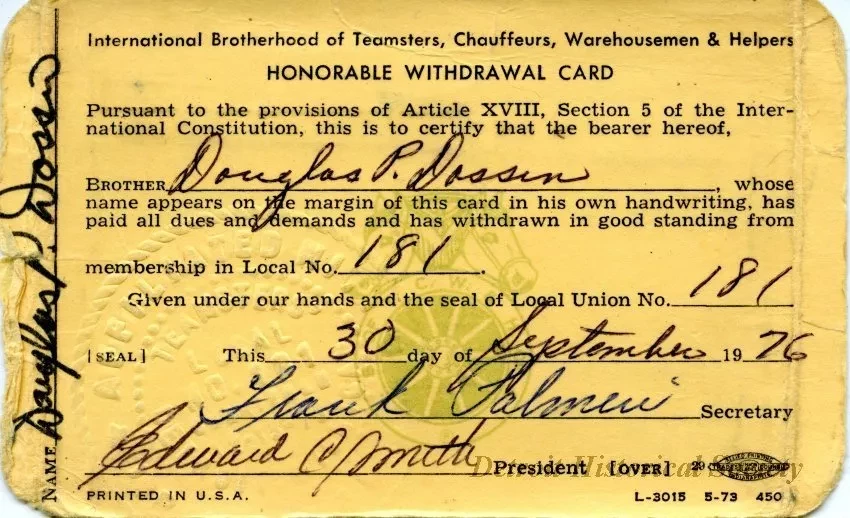 International Brotherhood of Teamsters, Chauffeurs, Warehousemen & Helpers
HONORABLE WITHDRAWAL CARD
Pursuant to the provisions of Article XVIII, Section 5 of the Inter-
national Constitution, this is to certify that the bearer hereof,
BROTHER Douglas P. Dossin, whose
name appears on the margin of this card in his own handwriting, has
paid all dues and demands and has withdrawn in good standing from
membership in Local No. 181.
Given under our hands and the seal of Local Union No. 181
[SEAL] This 30 day of September 1976
Frank Palmeri Secretary
Edward C Smith President [OVER] 29
PRINTED IN U.S.A. L-3015 5-73 450
NAME Douglas P. Dossin
Detroit Historical Society